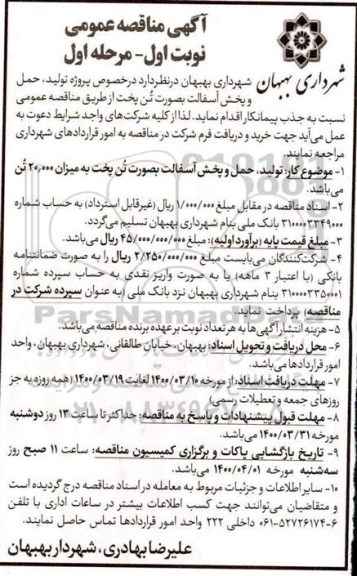 آگهی مناقصه عمومی
نوبت اول- مرحله اول
شهرداری بهبهان
شهرداری بهبهان درنظردارد درخصوص پروژه تولید، حمل
و پخش آسفالت بصورت تُن پخت از طریق مناقصه عمومی
نسبت به جذب پیمانکار اقدام نماید. لذا از کلیه شرکت‌های واجد شرایط دعوت به
عمل می‌آید جهت خرید و دریافت فرم شرکت در مناقصه به امور قراردادهای شهرداری
مراجعه نمایند.
۱- موضوع کار: تولید، حمل و پخش آسفالت بصورت تُن پخت به میزان ۲۰,۰۰۰ تُن
می‌باشد.
۲- اسناد مناقصه در مقابل مبلغ ۱/۰۰۰/۰۰۰ ریال (غیرقابل استرداد) به حساب شماره
۳۱۰۰۰۰۳۲۴۹۰۰۰ بانک ملی بنام شهرداری بهبهان تسلیم می‌گردد.
۳- مبلغ قیمت پایه (برآورد اولیه): مبلغ ۴۵/۰۰۰/۰۰۰/۰۰۰ ریال می‌باشد.
۴- شرکت‌کنندگان می‌بایست مبلغ ۲/۲۵۰/۰۰۰/۰۰۰ ریال را به صورت ضمانتنامه
بانکی (با اعتبار ۳ ماهه) یا به صورت واریز نقدی به حساب سپرده شماره
۳۱۰۰۰۰۳۳۵۰۰۰۱ بنام شهرداری بهبهان نزد بانک ملی (به عنوان سپرده شرکت در
مناقصه) پرداخت نماید.
۵- هزینه انتشار آگهی‌ها به هر تعداد نوبت بر عهده برنده مناقصه می‌باشد.
۶- محل دریافت و تحویل اسناد: بهبهان، خیابان طالقانی، شهرداری بهبهان، واحد
امور قراردادها می‌باشد.
۷- مهلت دریافت اسناد: از مورخه ۱۴۰۰/۰۳/۱۰ لغایت ۱۴۰۰/۰۳/۱۹ (همه روزه به جز
روزهای جمعه و تعطیلات رسمی)
۸- مهلت قبول پیشنهادات و پاسخ به مناقصه: حداکثر تا ساعت ۱۳ روز دوشنبه
مورخه ۱۴۰۰/۰۳/۳۱ می‌باشد.
۹- تاریخ بازگشایی پاکات و برگزاری کمیسیون مناقصه: ساعت ۱۱ صبح روز
سه‌شنبه مورخه ۱۴۰۰/۰۴/۰۱ می‌باشد.
۱۰- سایر اطلاعات و جزئیات مربوط به معامله در اسناد مناقصه درج گردیده است
و متقاضیان می‌توانند جهت کسب اطلاعات بیشتر در ساعات اداری با تلفن
۰۶۱-۵۲۷۲۶۱۷۴-۶ داخلی ۲۲۲ واحد امور قراردادها تماس حاصل نمایند.
علیرضا بهادری، شهردار بهبهان